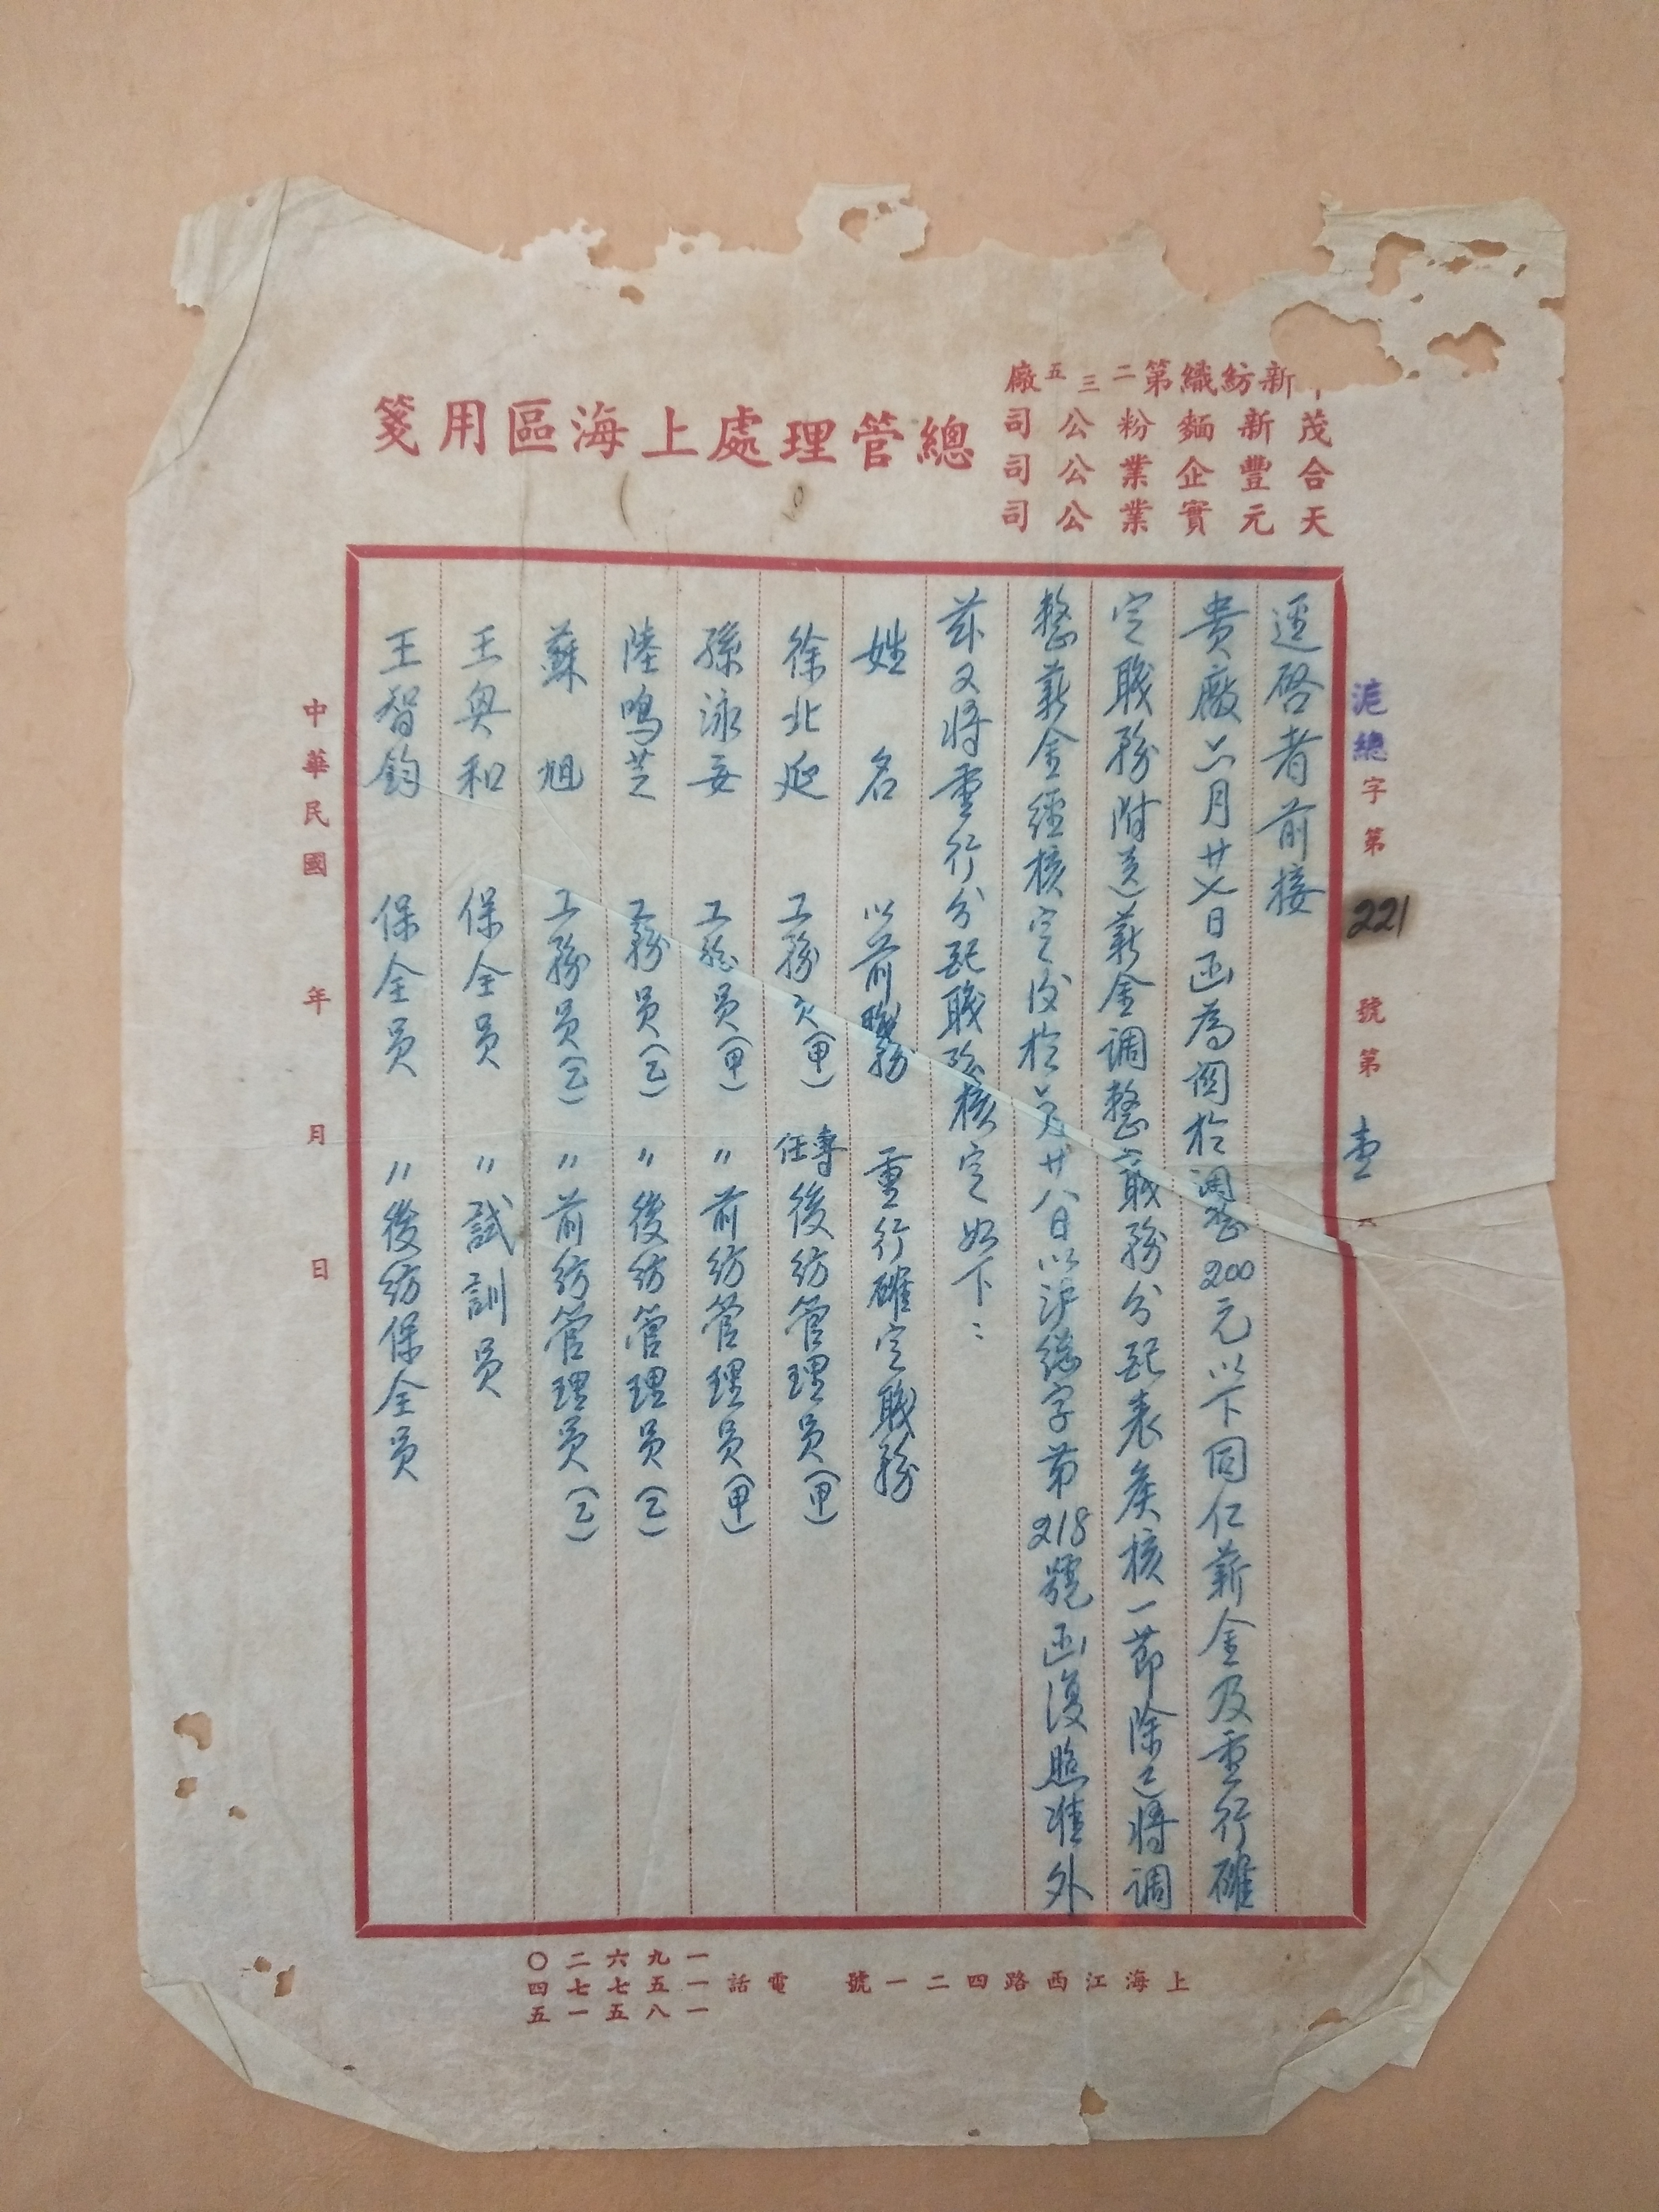 新紡織第二三五廠
茂新麵粉公司
合豐企業公司
天元實業公司
總管理處上海區用箋
滬總字第221號第壹
逕啓者前接
貴廠六月廿七日函為關於調整200元以下同仁薪金及重行確
定職務附送薪金調整職務分配表矦核一節除已將調
整薪金經核定後於六月廿八日以沪總字第218號函復照准外
茲又將重行分配職務核定如下：
姓名 以前職務 重行確定職務
徐北 工務員(甲) 專任後紡管理員(甲)
孫泳 工務員(甲) 〃前紡管理員(甲)
陸鳴芝 工務員(乙) 〃後紡管理員(乙)
蘇旭 工務員(乙) 〃前紡管理員(乙)
王奥和 保全員 〃試訓員
王智鈞 保全員 〃後紡保全員
中華民國 年 月 日
上海江西路四二一號 電話
一九六二〇
一五七七四
一八五一五